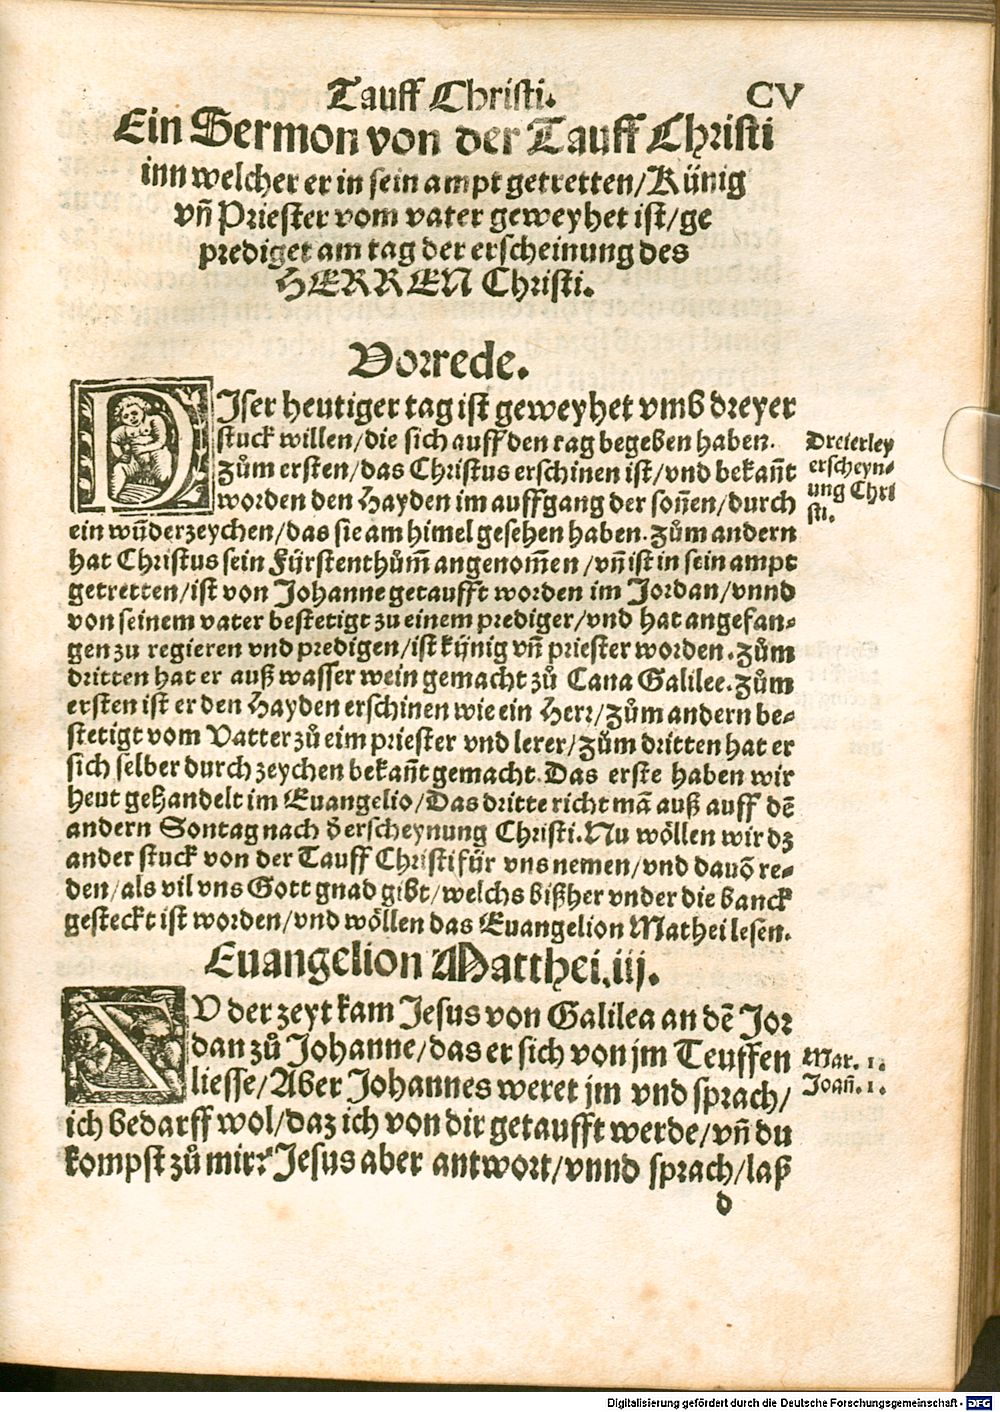 Tauff Christi. CV
Ein Sermon von der Tauff Christi
inn welcher er in sein ampt getretten/Künig
vñ Priester vom vater geweyhet ist/ge
prediget am tag der erscheinung des
HERREN Christi.
Vorrede.
DIser heutiger tag ist geweyhet vmb dreyer
stuck willen/die sich auff den tag begeben haben.
Zům ersten/das Christus erschinen ist/vnd bekañt
worden den Hayden im auffgang der soñen/durch
ein wũderzeychen/das sie am himel gesehen haben. Zům andern
hat Christus sein Fürstenthům̃ angenom̃en/vñ ist in sein ampt
getretten/ist von Johanne getaufft worden im Jordan/vnnd
von seinem vater bestetigt zu einem prediger/vnd hat angefan-
gen zu regieren vnd predigen/ist künig vñ priester worden. Zům
dritten hat er auß wasser wein gemacht zů Cana Galilee. Zům
ersten ist er den Hayden erschinen wie ein Herr/zům andern be-
stetigt vom Vatter zů eim priester vnd lerer/zům dritten hat er
sich selber durch zeychen bekañt gemacht. Das erste haben wir
heut gehandelt im Euangelio/Das dritte richt mã auß auff dẽ
andern Sontag nach d̕ erscheynung Christi. Nu wöllen wir dz
ander stuck von der Tauff Christi für vns nemen/vnd dauõ re-
den/als vil vns Gott gnad gibt/welchs bißher vnder die banck
gesteckt ist worden/vnd wöllen das Euangelion Mathei lesen.
Dreierley
erscheyn-
ung Chri
sti.
Euangelion Matthei.iij.
ZV der zeyt kam Jesus von Galilea an dẽ Jor
dan zů Johanne/das er sich von jm Teuffen
liesse/Aber Johannes weret jm vnd sprach/
ich bedarff wol/daz ich von dir getaufft werde/vñ du
kompst zů mir? Jesus aber antwort/vnnd sprach/laß
Mar. 1.
Joañ. 1.
d
Digitalisierung gefördert durch die Deutsche Forschungsgemeinschaft - DFG